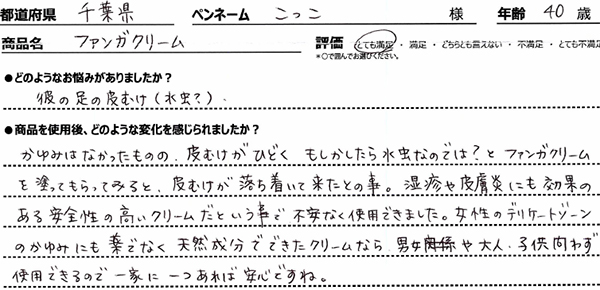 都道府県 千葉県 ペンネーム こっこ 様 年齢 40 歳
商品名 ファンガクリーム 評価 とても満足・満足・どちらとも言えない・不満足・とても不満足
*○で囲んでお選びください。
●どのようなお悩みがありましたか？
彼の足の皮むけ(水虫?).
●商品を使用後、どのような変化を感じられましたか？
かゆみはなかったものの、皮むけがひどく もしかしたら水虫なのでは?と ファンガクリーム
を塗ってもらってみると、皮むけが落ち着いて来たとの事。湿疹や皮膚炎にも効果の
ある安全性の高いクリームだという事で不安なく使用できました。女性のデリケートゾーン
のかゆみにも薬でなく天然成分でできたクリームなら、男女関係や大人、子供問わず
使用できるので一家に一つあれば安心ですね。